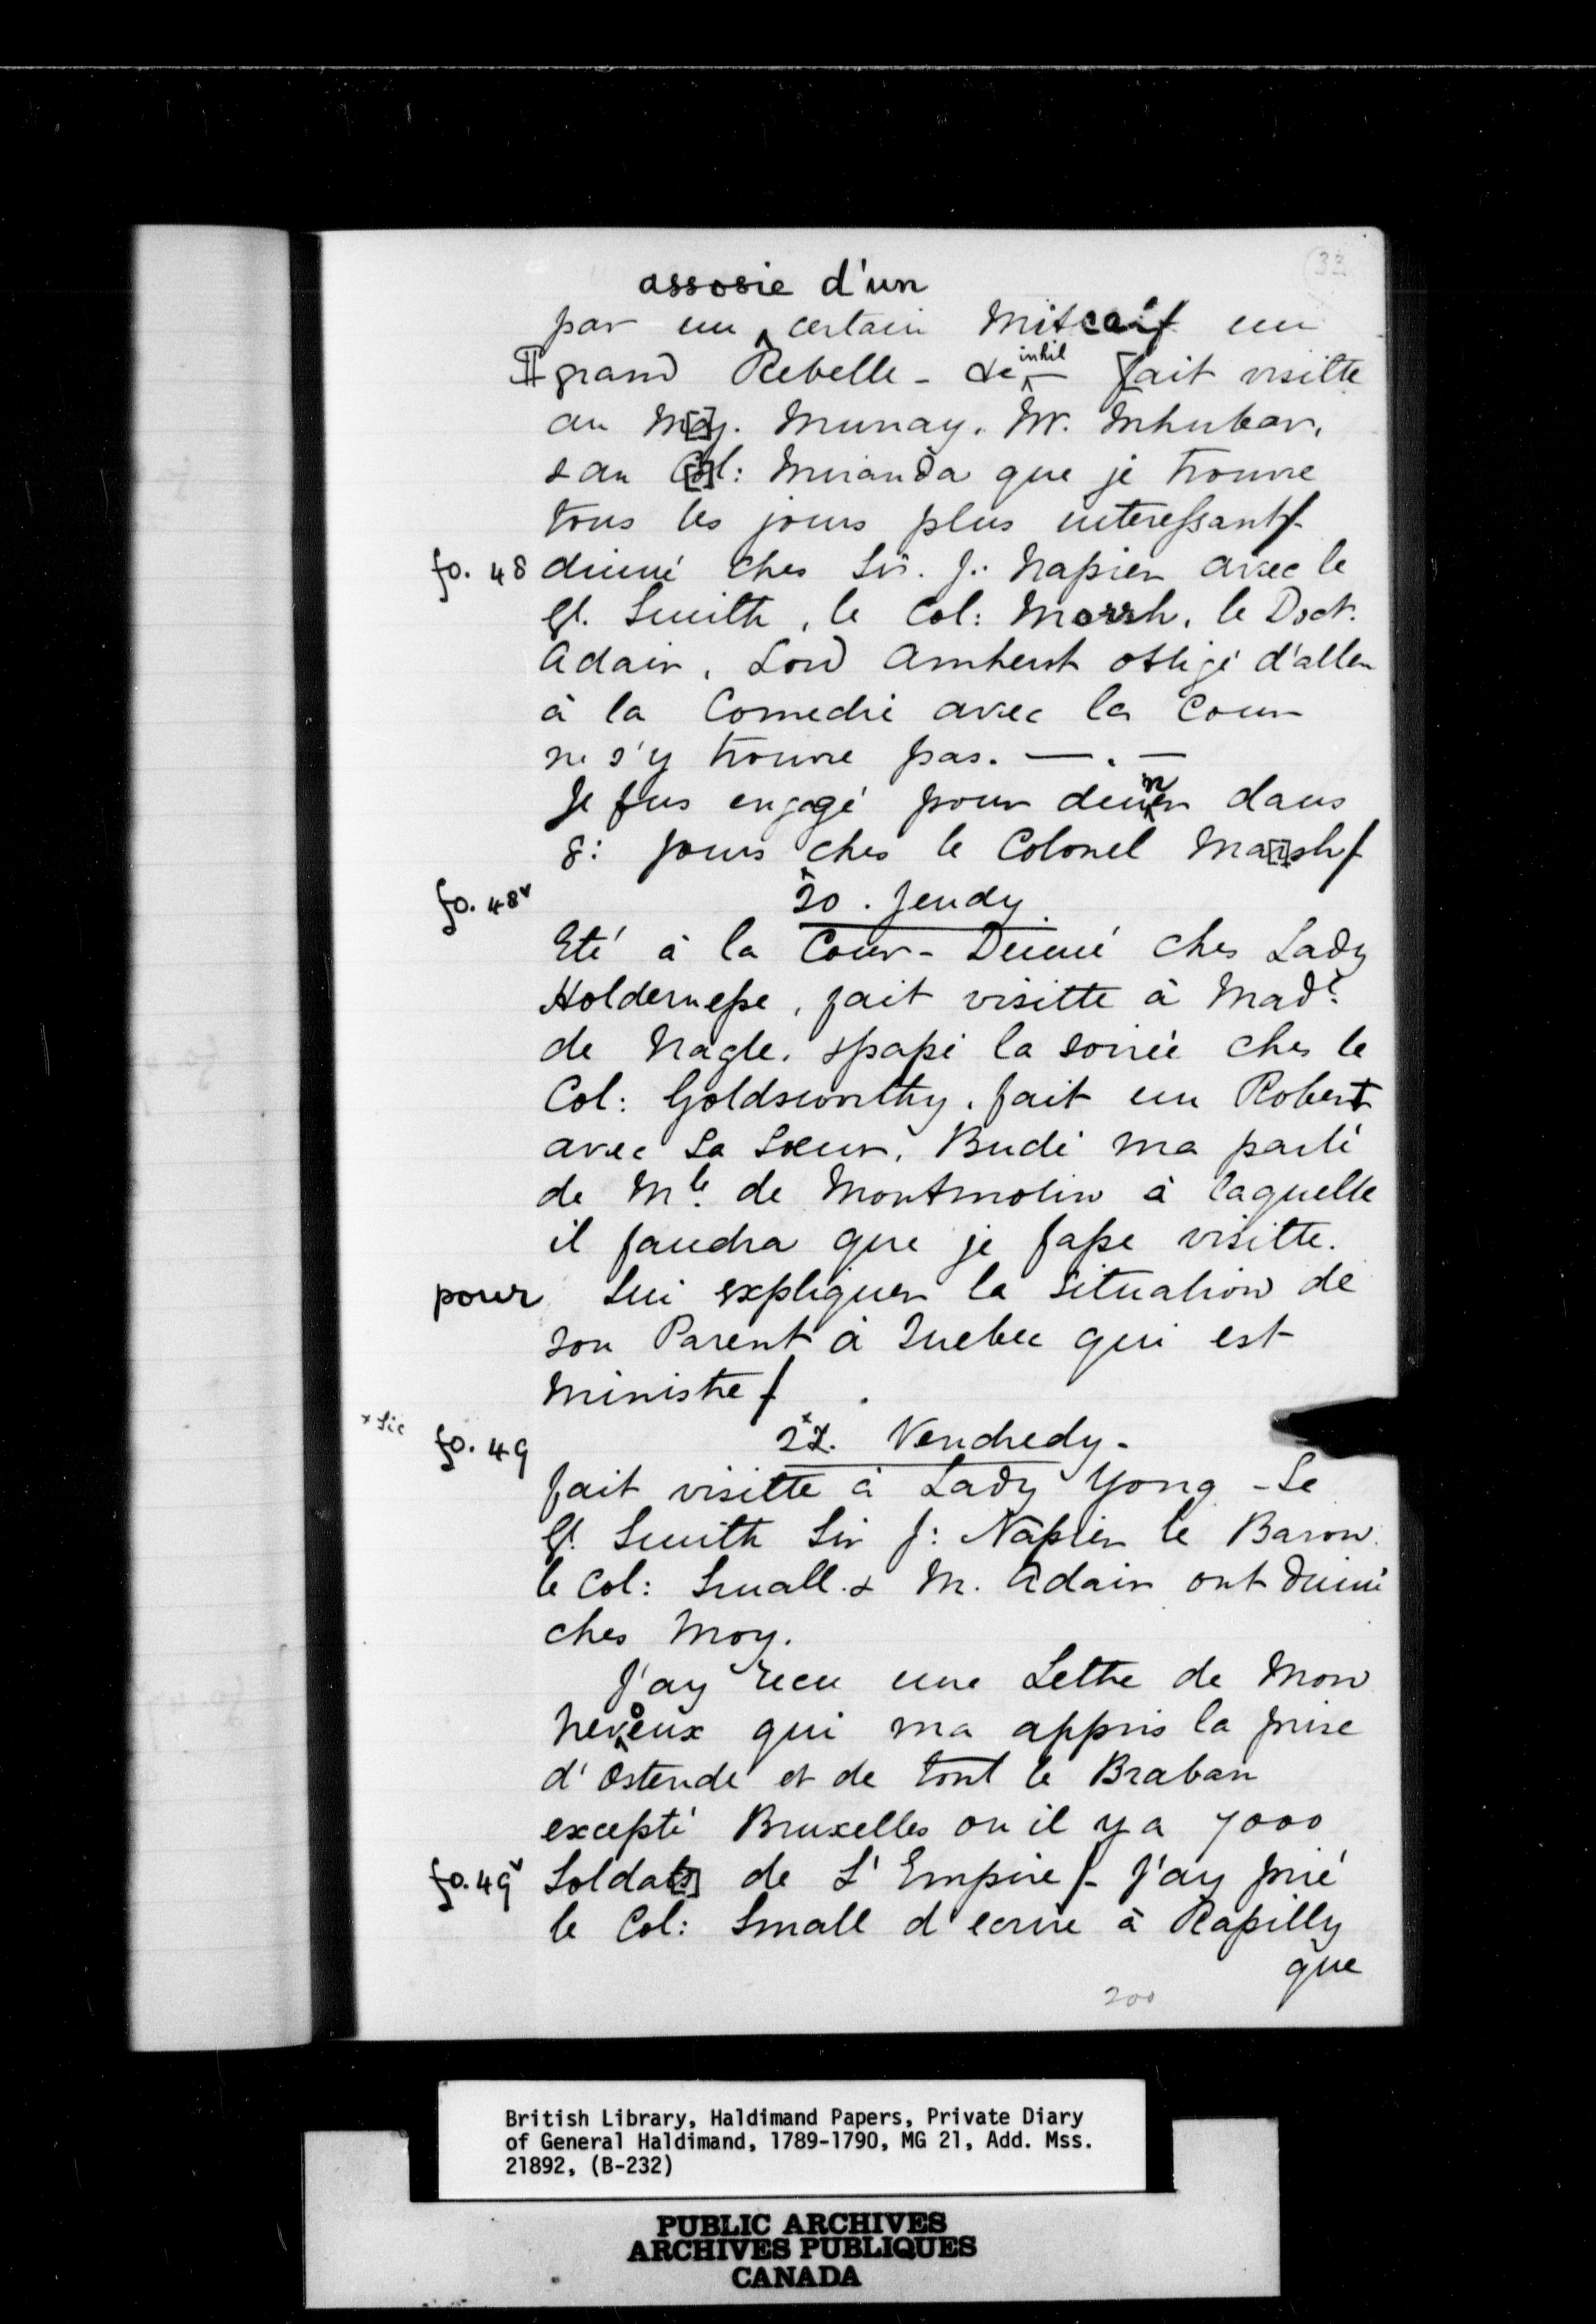 33
associe d'un
par un certain Mitcaif un
grand Rebelle - de inhil fait visitte
au M[aj]. Murray. Mr. Mhubar.
& au C[o]l: Miranda que je trouve
tous les jours plus interessant/-
fo. 48 dinné ches Sir. J: Napier avec le
Gl. Smith, le Col: Morrsh, le Doct.
Adair, Lord Amherst obligé d'aller
à la Comedie avec la Cour
ne s'y trouve pas. — . —
Je fus engagé pour dinner dans
8: jours ches le Colonel Ma[r]sh/-
fo. 48v 20. Jeudy
Eté à la Cour - Dinné ches Lady
Holdernesse, fait visitte à Made.
de Nagle. & passé la soirée ches le
Col: Goldsworthy. fait un Robert
avec Sa Sœur. Budé ma parlé
de Mle. de Montmolin à laquelle
il faudra que je fasse visitte.
pour Lui expliquer la situation de
son Parent à Quebec qui est
Ministre/
x Sic
fo. 49 22x. Vendredy -
fait visitte à Lady Yong - Le
Gl. Smith Sir J: Napier le Baron.
le Col: Small. & M. Adair ont dinné
ches Moy.
J'ay recu une Lettre de Mon
Neveux qui ma appris la prise
d'Ostende et de tout le Braban
excepté Bruxelles ou il y a 7000
fo. 49v Soldat[s] de L'Empire/- J'ay prié
le Col: Small d'ecrire à Rapilly
que
200
British Library, Haldimand Papers, Private Diary
of General Haldimand, 1789-1790, MG 21, Add. Mss.
21892, (B-232)
PUBLIC ARCHIVES
ARCHIVES PUBLIQUES
CANADA